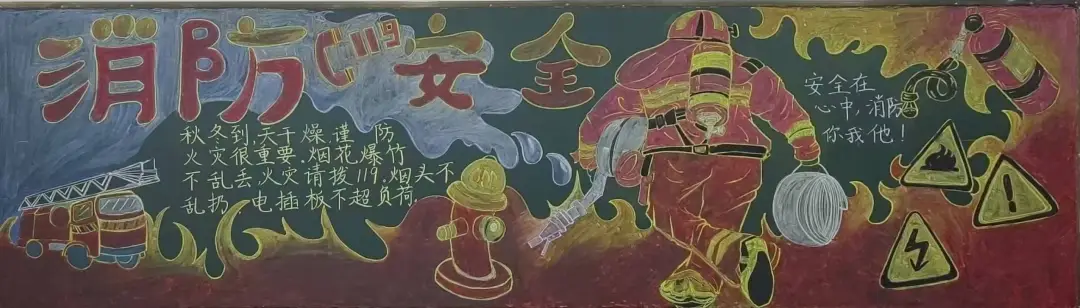 消防119安全
秋冬到,天干燥,谨防
火灾很重要.烟花爆竹
不乱丢,火灾请拨119.烟头不
乱扔,电插板不超负荷.
安全在
心中,消防
你我他!